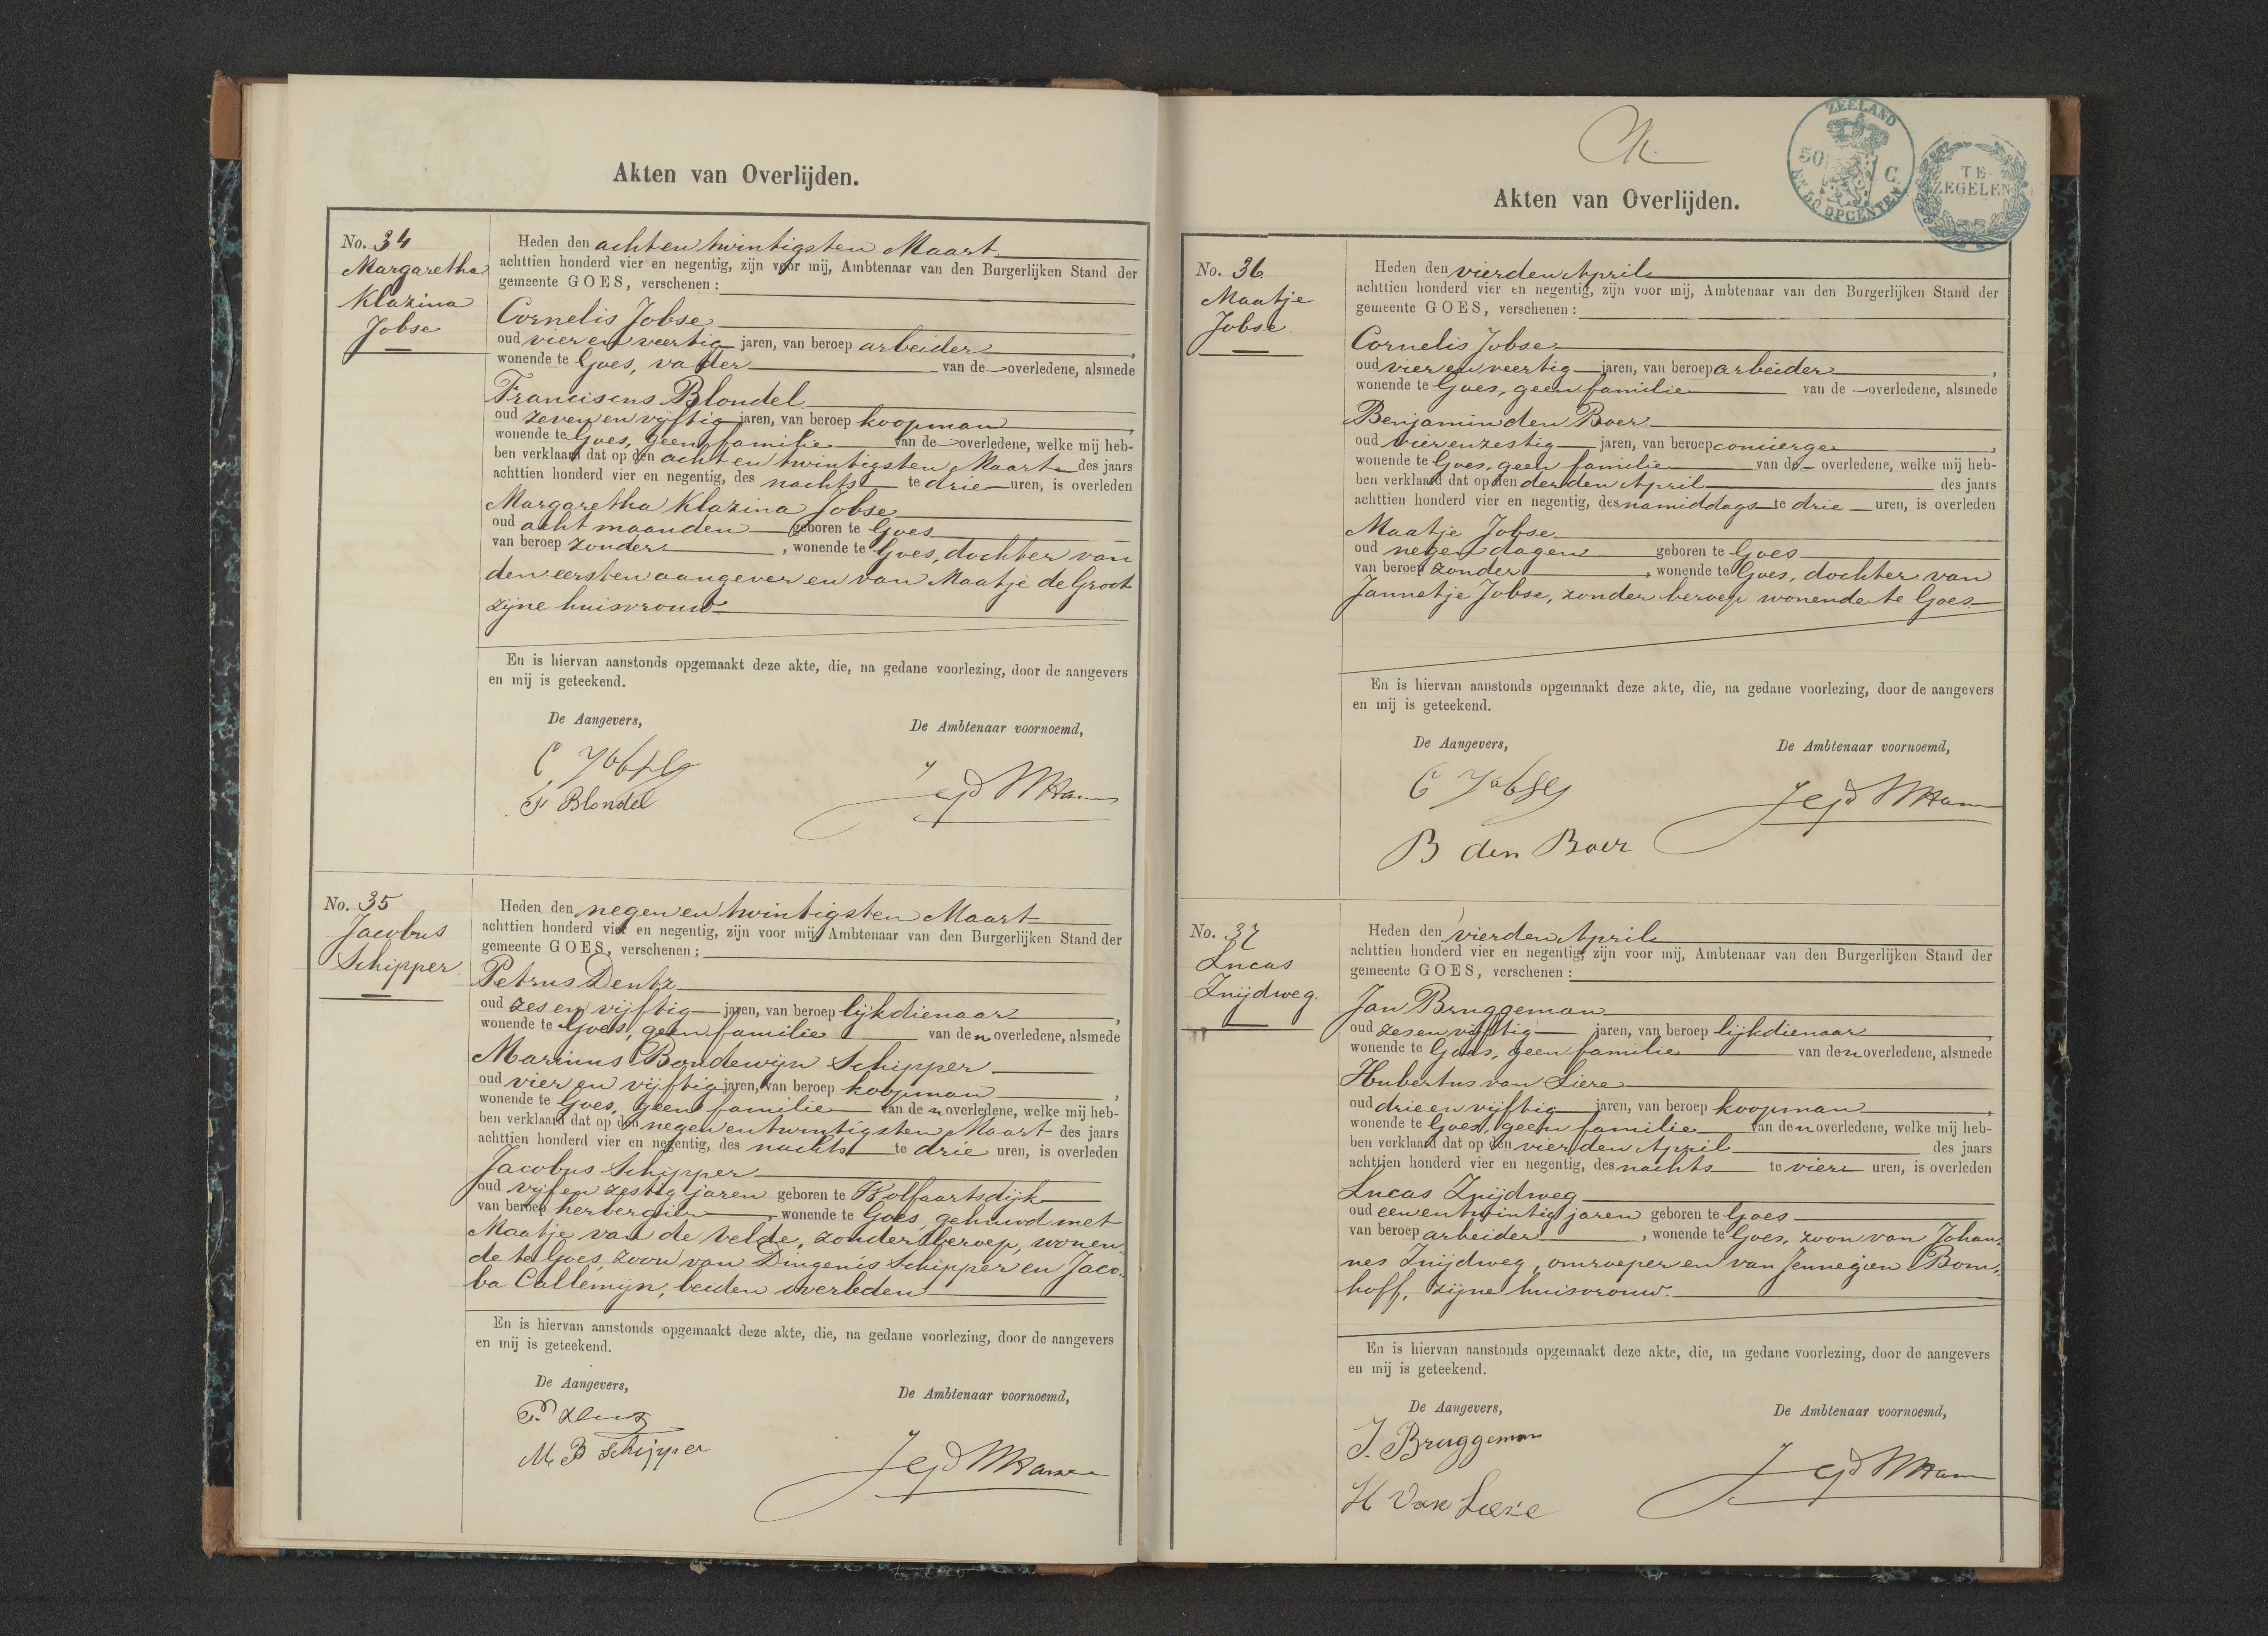 Akten van Overlijden.
No. 34
Margaretha
Klazina
Jobse
Heden den acht en twintigsten Maart
achttien honderd vier en negentig, zijn voor mij, Ambtenaar van den Burgerlijken Stand der
gemeente GOES, verschenen:
Cornelis Jobse
oud vier en veertig jaren, van beroep arbeider,
wonende te Goes, vader van de overledene, alsmede
Franciscus Blondel
oud zeven en vijftig jaren, van beroep koopman,
wonende te Goes, geen familie van de overledene, welke mij heb-
ben verklaard dat op den acht en twintigsten Maart des jaars
achttien honderd vier en negentig, des nachts te drie uren, is overleden
Margaretha Klazina Jobse
oud acht maanden geboren te Goes
van beroep zonder, wonende te Goes, dochter van
den eersten aangever en van Maatje de Groot
zijne huisvrouw
En is hiervan aanstonds opgemaakt deze akte, die, na gedane voorlezing, door de aangevers
en mij is geteekend.
De Aangevers,
De Ambtenaar voornoemd,
C Jobse
F Blondel
No. 35
Jacobus
Schipper
Heden den negen en twintigsten Maart
achttien honderd vier en negentig, zijn voor mij, Ambtenaar van den Burgerlijken Stand der
gemeente GOES, verschenen:
Petrus Dentz
oud zes en vijftig jaren, van beroep lijkdienaar,
wonende te Goes, geen familie van den overledene, alsmede
Marinus Boudewijn Schipper
oud vier en vijftig jaren, van beroep koopman,
wonende te Goes, geen familie van den overledene, welke mij heb-
ben verklaard dat op den negen en twintigsten Maart des jaars
achttien honderd vier en negentig, des nachts te drie uren, is overleden
Jacobus Schipper
oud vijf en zestig jaren geboren te Wolfaartsdijk
van beroep herbergier, wonende te Goes, gehuwd met
Maatje van de Velde, zonder beroep, wonen-
de te Goes, zoon van Dingenis Schipper en Jaco-
ba Callemijn, beiden overleden
En is hiervan aanstonds opgemaakt deze akte, die, na gedane voorlezing, door de aangevers
en mij is geteekend.
De Aangevers,
De Ambtenaar voornoemd,
P. Dentz
M. B Schipper
ZEELAND
50 C.
EN 50 OPCENTEN
TE ZEGELEN
Akten van Overlijden.
No. 36
Maatje
Jobse.
Heden den vierden April
achttien honderd vier en negentig, zijn voor mij, Ambtenaar van den Burgerlijken Stand der
gemeente GOES, verschenen:
Cornelis Jobse
oud vier en veertig jaren, van beroep arbeider,
wonende te Goes, geen familie van de overledene, alsmede
Benjamin den Boer
oud vier en zestig jaren, van beroep concierge,
wonende te Goes, geen familie van de overledene, welke mij heb-
ben verklaard dat op den derden April des jaars
achttien honderd vier en negentig, des namiddags te drie uren, is overleden
Maatje Jobse
oud negen dagen geboren te Goes
van beroep zonder, wonende te Goes, dochter van
Jannetje Jobse, zonder beroep wonende te Goes
En is hiervan aanstonds opgemaakt deze akte, die, na gedane voorlezing, door de aangevers
en mij is geteekend.
De Aangevers,
De Ambtenaar voornoemd,
C Jobse
B den Boer
No. 37
Lucas
Zuijdweg.
Heden den vierden April
achttien honderd vier en negentig, zijn voor mij, Ambtenaar van den Burgerlijken Stand der
gemeente GOES, verschenen:
Jan Bruggeman
oud zes en vijftig jaren, van beroep lijkdienaar,
wonende te Goes, geen familie van den overledene, alsmede
Hubertus van Liere
oud drie en vijftig jaren, van beroep koopman,
wonende te Goes, geen familie van den overledene, welke mij heb-
ben verklaard dat op den vierden April des jaars
achttien honderd vier en negentig, des nachts te vier uren, is overleden
Lucas Zuijdweg
oud een en twintig jaren geboren te Goes
van beroep arbeider, wonende te Goes, zoon van Johan-
nes Zuijdweg, omroeper en van Jennegien Bom-
hoff, zijne huisvrouw.
En is hiervan aanstonds opgemaakt deze akte, die, na gedane voorlezing, door de aangevers
en mij is geteekend.
De Aangevers,
De Ambtenaar voornoemd,
J. Bruggeman
H Van Liere